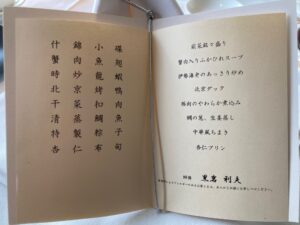 什錦小碟
蟹肉魚翅
時炒龍蝦
北京烤鴨
干菜扣肉
清蒸鯛魚
特製粽子
杏仁布甸
前菜銘々盛り
蟹肉入りふかひれスープ
伊勢海老のあっさり炒め
北京ダック
豚肉のやわらか煮込み
鯛の葱、生姜蒸し
中華風ちまき
杏仁プリン
利夫